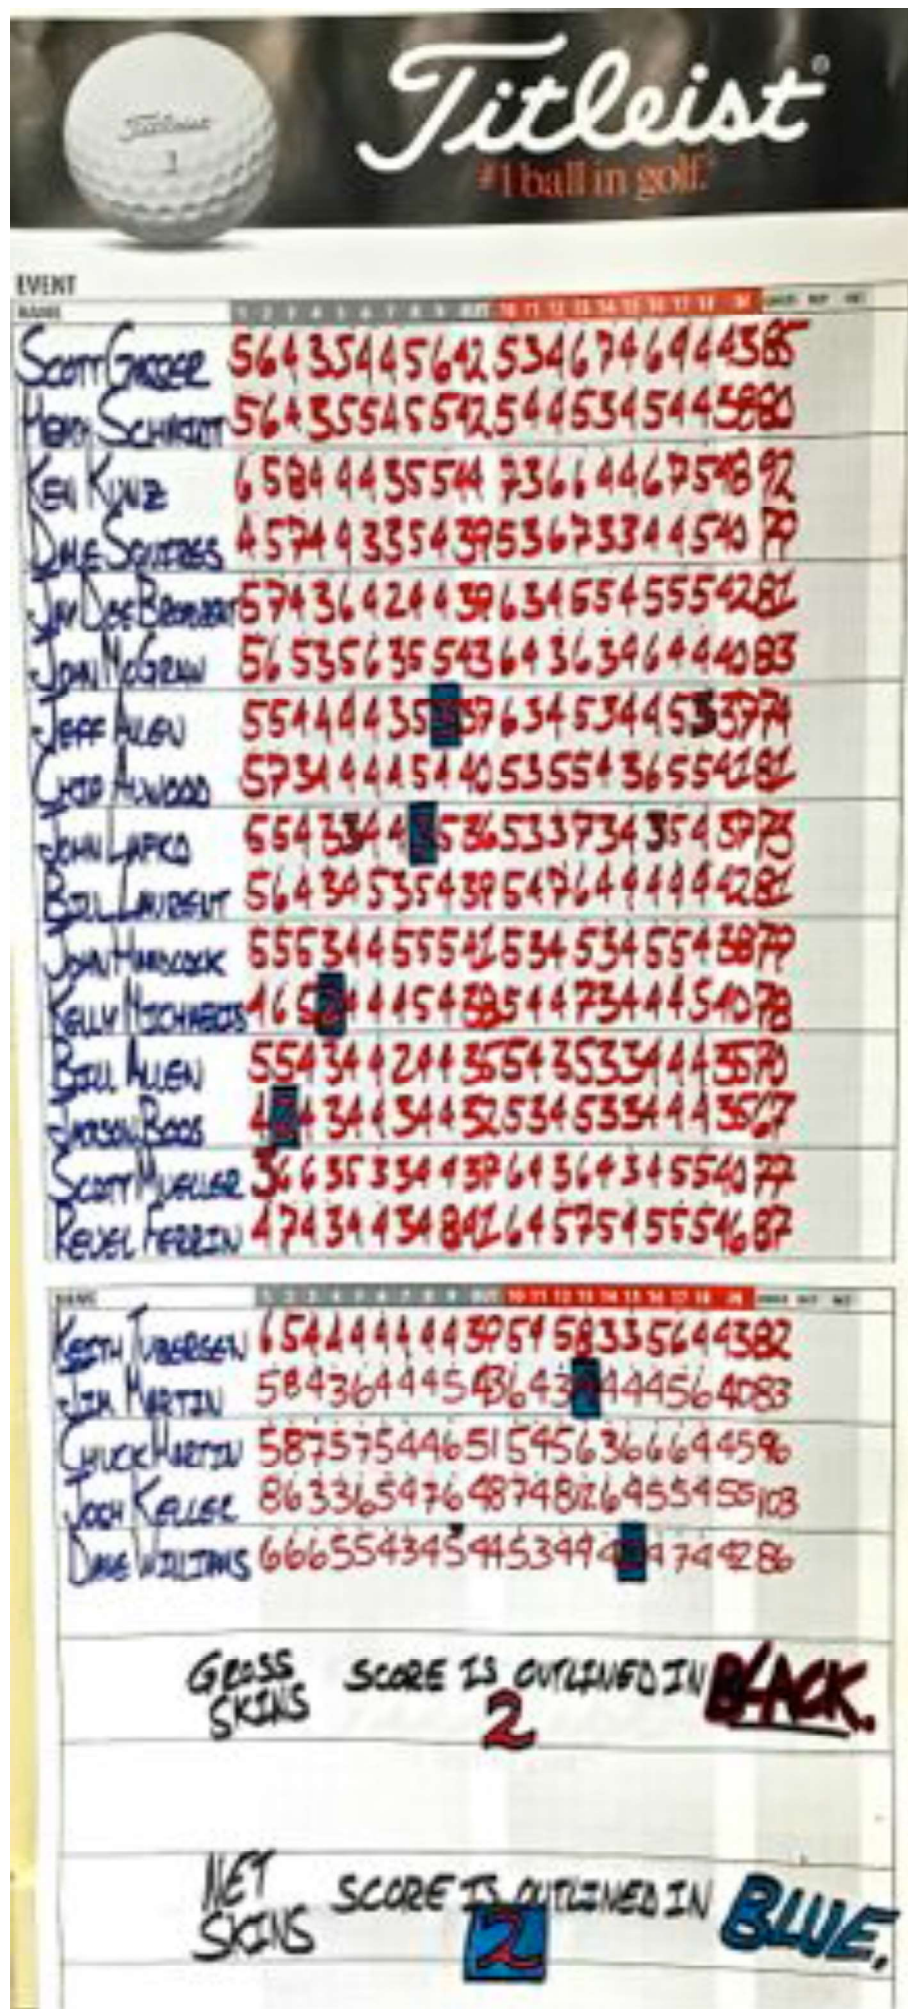 Titleist
Titleist®
1
#1 ball in golf.
EVENT
NAME 1 2 3 4 5 6 7 8 9 OUT 10 11 12 13 14 15 16 17 18 IN
SCOTT 5 6 4 3 5 4 4 5 6 42 5 3 4 6 7 4 6 4 4 43 85
HERM SCHMIDT 5 6 4 3 5 5 4 5 5 42 5 4 4 5 3 4 5 4 4 38 80
KEN KUNZ 6 5 8 4 4 4 3 5 5 44 7 3 6 6 4 4 6 7 5 48 92
DALE SQUIRES 4 5 7 4 4 3 3 5 4 39 5 3 6 7 3 3 4 4 5 40 79
JIM 5 7 4 3 6 4 2 4 4 39 6 3 4 5 5 4 5 5 5 42 81
JOHN MCGRAW 5 6 5 3 5 6 3 5 5 43 6 4 3 6 3 4 6 4 4 40 83
JEFF ALLEN 5 5 4 4 4 4 3 5 3 37 6 3 4 5 3 4 4 5 3 37 74
CHIP ALWOOD 5 7 3 4 4 4 4 5 4 40 5 3 5 5 4 3 6 5 5 41 81
JOHN LAPKO 5 5 4 3 3 4 4 3 5 36 5 3 3 7 3 4 3 5 4 37 73
BILL LAURENT 5 6 4 3 4 5 3 5 4 39 5 4 7 6 4 4 4 4 4 42 81
JOHN HANDCOCK 5 5 5 3 4 4 5 5 5 41 5 3 4 5 3 4 5 5 4 38 79
KELLY MICHAELIS 4 6 5 2 4 4 4 5 4 38 5 4 4 7 3 4 4 4 5 40 78
BILL ALLEN 5 5 4 3 4 4 2 4 4 35 5 4 3 5 3 3 4 4 4 35 70
JACKSON BOOS 4 2 4 3 4 4 3 4 4 32 5 3 4 5 3 3 4 4 4 35 67
SCOTT MUELLER 3 6 6 3 5 3 3 4 4 37 6 4 3 6 4 3 4 5 5 40 77
REUEL FERRIN 4 7 4 3 4 4 3 4 8 41 6 4 5 7 5 4 5 5 5 46 87
NAME 1 2 3 4 5 6 7 8 9 OUT 10 11 12 13 14 15 16 17 18 IN
KEITH TUBERGEN 6 5 4 4 4 4 4 4 4 39 5 4 5 8 3 3 5 6 4 43 82
JIM MARTIN 5 8 4 3 6 4 4 4 5 43 6 4 3 4 4 4 4 5 6 40 83
CHUCK MARTIN 5 8 7 5 7 5 4 4 6 51 5 4 5 6 3 6 6 6 4 45 96
JOSH KELLER 8 6 3 3 6 5 4 7 6 48 7 4 8 12 6 4 5 5 4 55 103
DAVE WILLIAMS 6 6 6 5 5 4 3 4 5 44 5 3 4 4 4 4 7 4 42 86
GROSS SKINS SCORE IS OUTLINED IN BLACK.
2
NET SKINS SCORE IS OUTLINED IN BLUE.
2